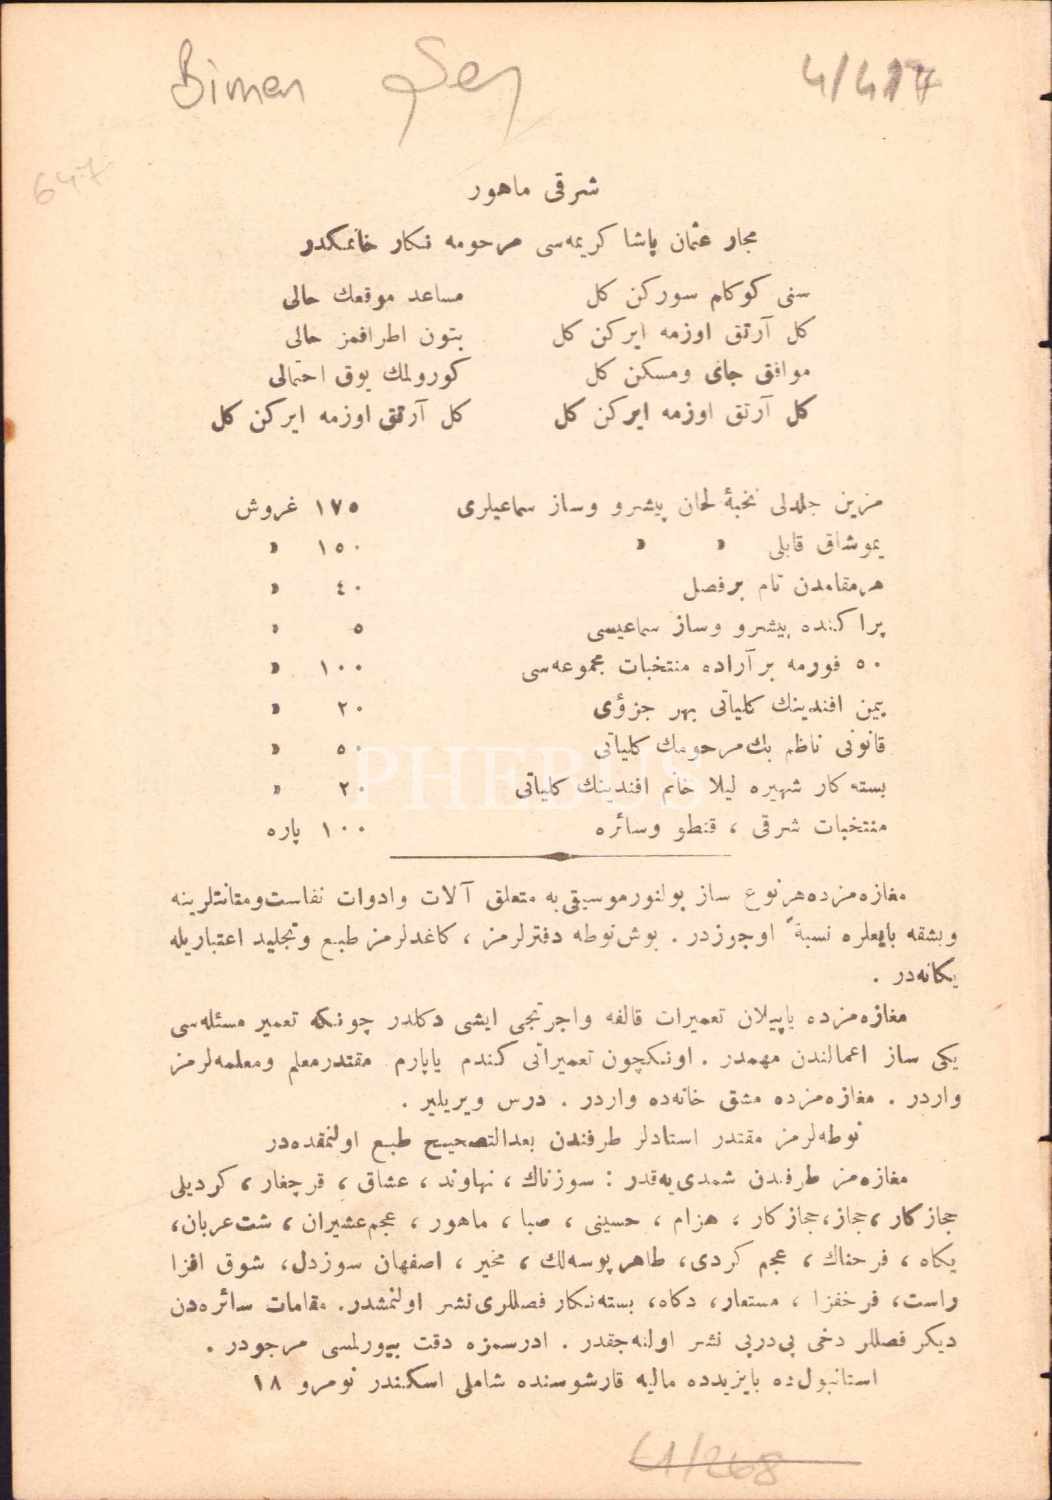 Bimen Şen
4/417
647
شرقی ماهور
مجار عثمان پاشا کریمه‌سی مرحومه نكار خانمکدر
سنی کوکام سورکن کل        مساعد موقعك حالی
کل آرتق اوزمه ایرکن کل        بتون اطرافمز خالی
موافق جای ومسکن کل        کورولمك یوق احتمالی
کل آرتق اوزمه ایرکن کل        کل آرتق اوزمه ایرکن کل
مزین جلدلی نخبۀ لحان پیشرو وساز سماعیلری        ١٧٥ غروش
یموشاق قابلی » »        ١٥٠ »
هرمقامدن تام برفصل        ٤٠ »
پراکنده پیشرو وساز سماعیسی        ٥ »
٥٠ فورمه برآراده منتخبات مجموعه‌سی        ١٠٠ »
بیمن افندینك کلیاتی بهر جزؤی        ٢٠ »
قانونی ناظم بك مرحومك کلیاتی        ٥٠ »
بسته‌کار شهیره لیلا خانم افندینك کلیاتی        ٢٠ »
منتخبات شرقی ، قنطو وسائره        ١٠٠ پاره
PHEBUS
مغازه‌مزده هرنوع ساز بولنور موسیقی‌یه متعلق آلات وادوات نفاست ومتانتلرینه
وبشقه بایعلره نسبةً اوجوزدر . بوش نوطه دفترلرمز ، کاغدلرمز طبع وتجلید اعتباریله
یکانه‌در .
مغازه‌مزده یاپیلان تعمیرات قالفه واجرتجی ایشی دکلدر چونکه تعمیر مسئله‌سی
یکی ساز اعمالندن مهمدر . اونکچون تعمیراتی کندم یاپارم مقتدرمعلم ومعلمه‌لرمز
واردر . مغازه‌مزده مشق خانه‌ده واردر . درس ویریلیر .
نوطه‌لرمز مقتدر استادلر طرفندن بعدالتصحیح طبع اولنمقده‌در
مغازه‌مز طرفندن شمدی‌یه‌قدر : سوزناك ، نهاوند ، عشاق ، قرجغار ، کردیلی
حجازکار ، حجاز ، حجازکار ، هزام ، حسینی ، صبا ، ماهور ، عجم عشیران ، شت عربان،
یکاه ، فرحناك ، عجم کردی، طاهر پوسه‌لك ، مخیر ، اصفهان سوزدل، شوق افزا
راست، فرخفزا ، مستعار، دکاه، بسته‌نکار فصللری نشر اولنمشدر. مقامات سائره‌دن
دیکر فصللر دخی پی‌درپی نشر اولنه‌جقدر . ادرسمزه دقت بیورلمسی مرجودر .
استانبول‌ده بایزیدده مالیه قارشوسنده شاملی اسکندر نومرو ١٨
61/268